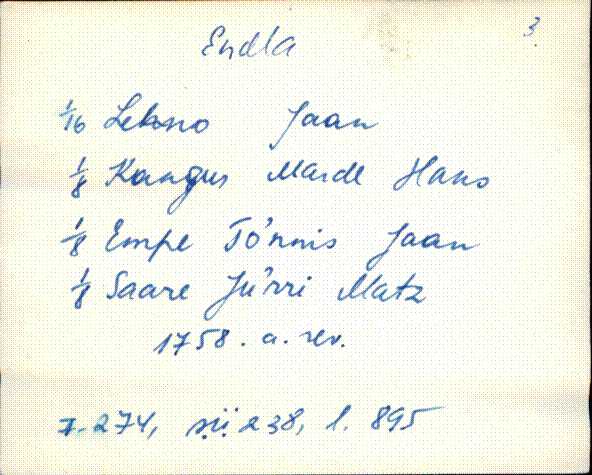 3
Endla
1/16 Lehno Jaan
1/8 Kangus Mardi Hans
1/8 Empe Tõnnis Jaan
1/8 Saare Jürri Matz
1758. a. rev.
F. 274, nii 238, l. 895